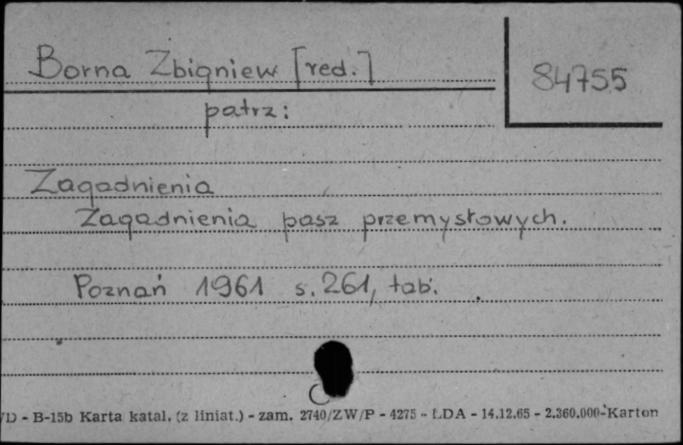 Borna Zbigniew [red.]
84755
patrz:
Zagadnienia
Zagadnienia pasz przemysłowych.
Poznań 1961 s. 261, tab.
/D - B-15b Karta katal. (z liniat.) - zam. 2740/ZW/P - 4275 - ŁDA - 14.12.65 - 2.360.000-Karton